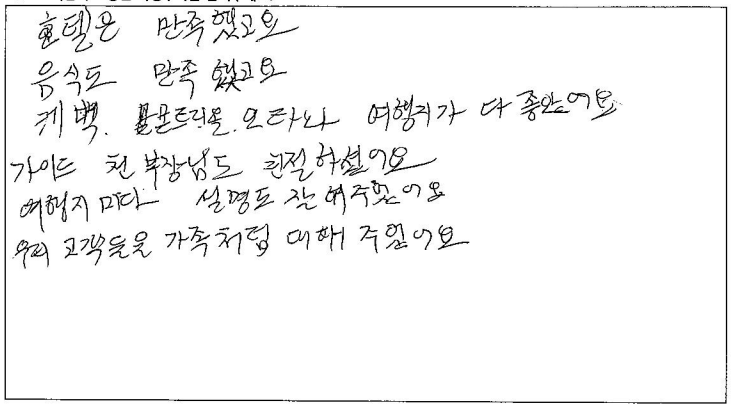 호텔은 만족했고요
음식도 만족했고요
퀘백. 몬트리올. 오타와 여행지가 다 좋았어요
가이드 천 부장님도 친절하셨어요
여행지 마다 설명도 잘 해주었어요
우리 고객들을 가족처럼 대해 주었어요